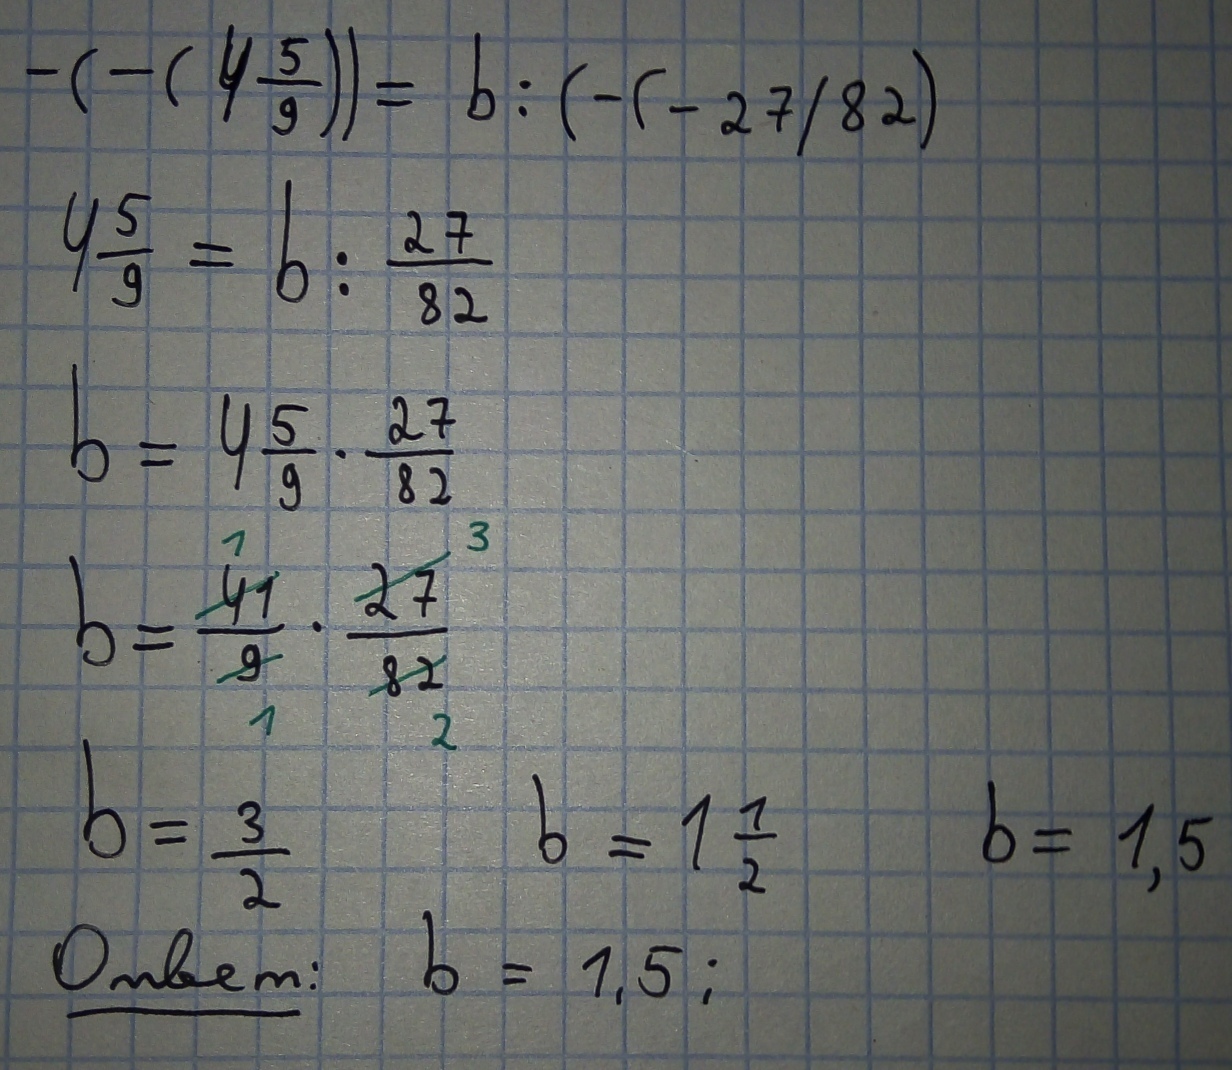 -(-(4 5/9)) = b : (-(-27/82)
4 5/9 = b : 27/82
b = 4 5/9 · 27/82
1 3
b = 41/9 · 27/82
1 2
b = 3/2 b = 1 1/2 b = 1,5
Ответ: b = 1,5;